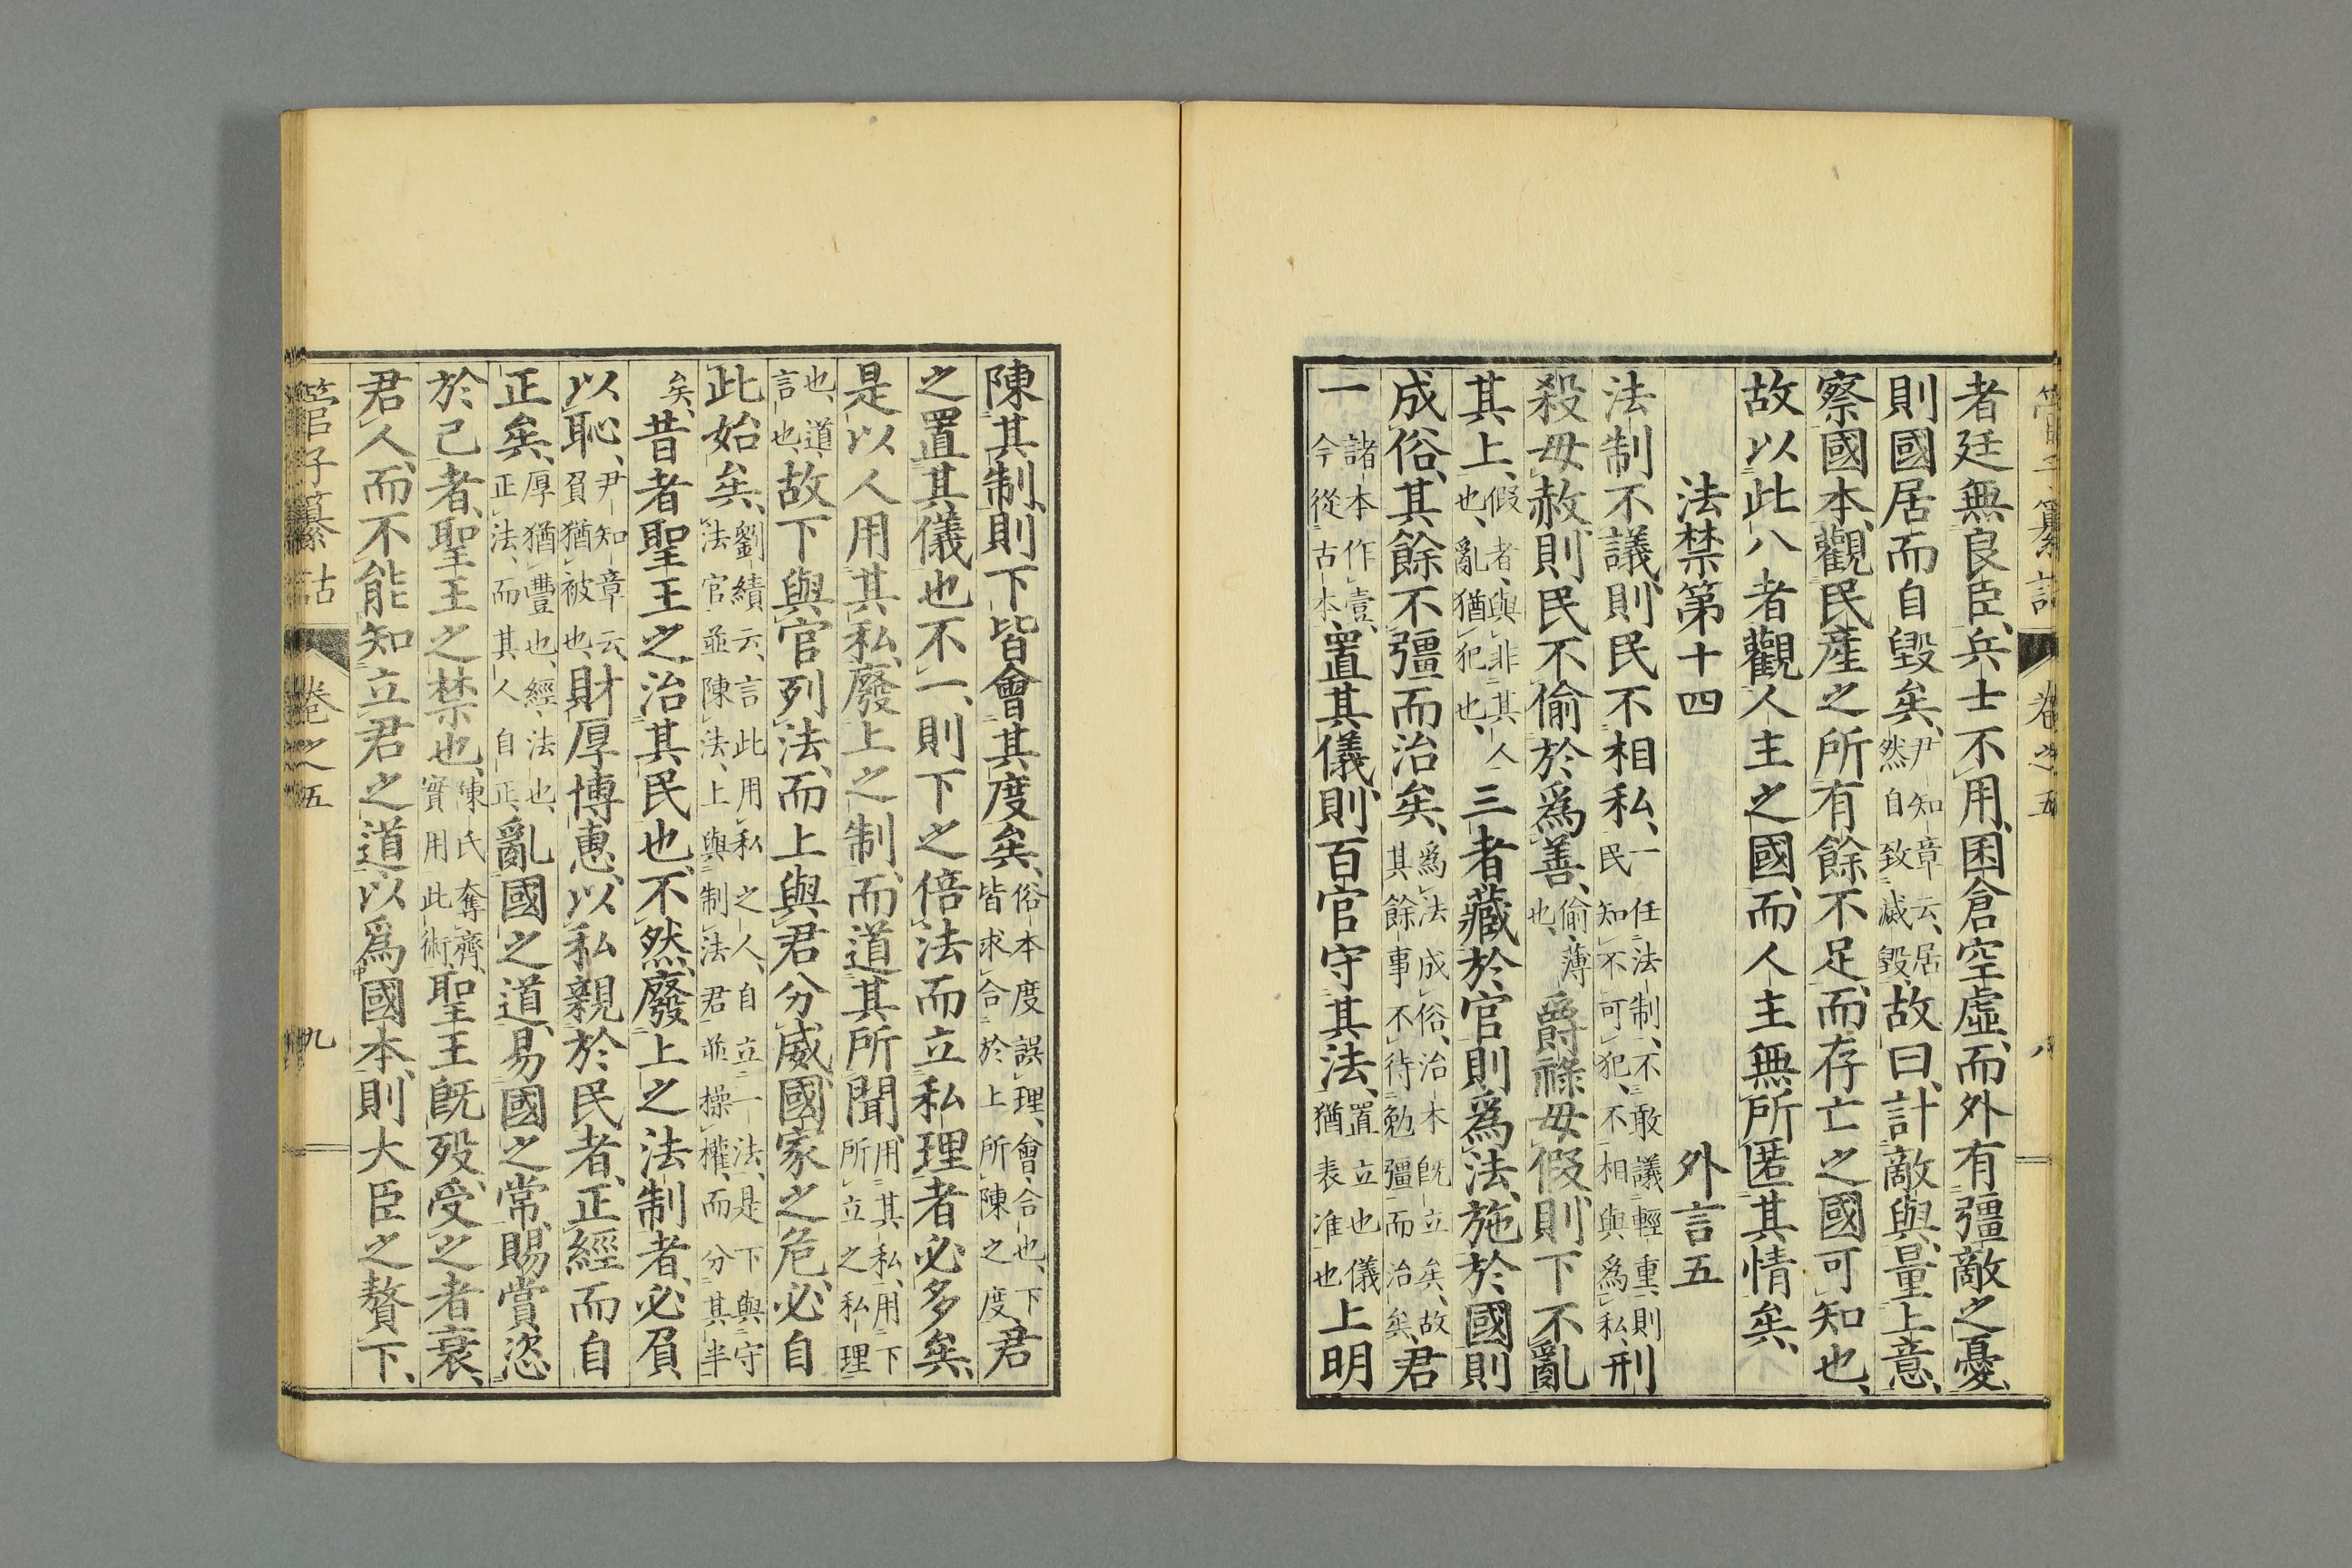 管子纂詁 卷之五 八
者廷無良臣、兵士不用、囷倉空虛、而外有彊敵之憂、
則國居而自毀矣、尹知章云、居然自致滅毀、故曰、計敵與、量上意、
察國本、觀民産之所有餘不足、而存亡之國可知也、
故以此八者觀人主之國、而人主無所匿其情矣、
法禁第十四 外言五
法制不議、則民不相私、一任法制、不敢議輕重、則民知不可犯、不相與爲私、刑
殺毋赦、則民不偷於爲善、偷、薄也、爵祿毋假、則下不亂
其上、假者、與非其人也、亂猶犯也、三者藏於官則爲法、施於國則
成俗、其餘不彊而治矣、爲法成俗、治本既立矣、故其餘事不待勉彊而治矣、君
一諸本作壹、今從古本、置其儀、則百官守其法、置立也儀猶表准也上明
陳其制、則下皆會其度矣、俗本度誤理、會、合也、下皆求合於上所陳之度、君
之置其儀也不一、則下之倍法而立私理者必多矣、
是以人用其私、廢上之制、而道其所聞、用其私、用下所立之私理
也、道、言也、故下與官列法、而上與君分威、國家之危、必自
此始矣、劉績云、言此用私之人、自立一法、是下與守法官並陳法、上與制法君並操權、而分其半
矣、昔者聖王之治其民也、不然、廢上之法制者、必負
以恥、尹知章云、負猶被也、財厚博惠、以私親於民者、正經而自
正矣、厚猶豐也、經、法也、正法、而其人自正、亂國之道、易國之常、賜賞恣
於己者、聖王之禁也、陳氏奪齊、實用此術、聖王既歿、受之者衰、
君人、而不能知立君之道、以爲國本、則大臣之贅下、
管子纂詁 卷之五 九